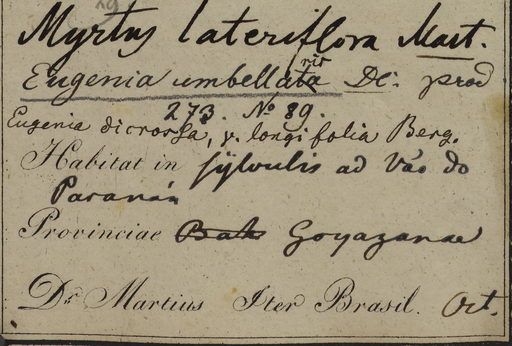 Myrtus lateriflora Mart.
Eugenia umbellata DC. prod
273. No 89.
Eugenia dicrossa, γ. longifolia Berg.
Habitat in sylvulis ad Vão do
Paranán
Provinciae Goyazanae
Dr. Martius Iter Brasil. Oct.